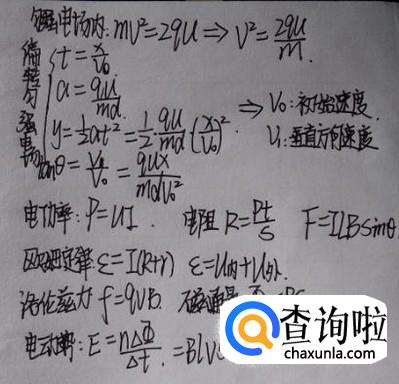 强电场内: mv²=2qU ⇒ v²=2qU/m
偏转匀强电场
t=x/v₀
a=qU/md
y=½at²=½·qU/md·(x/v₀)² ⇒ v₀:初始速度.
tanθ=v₁/v₀=qUx/mdv₀² v₁:垂直方向速度
电功率: P=UI 电阻 R=ρl/S F=ILBsinθ
欧姆定律: ε=I(R+r) ε=U内+U外.
洛伦兹力 f=qvB. 磁通量
电动势: E=nΔΦ/Δt =Blv
查询啦
chaxunla.com